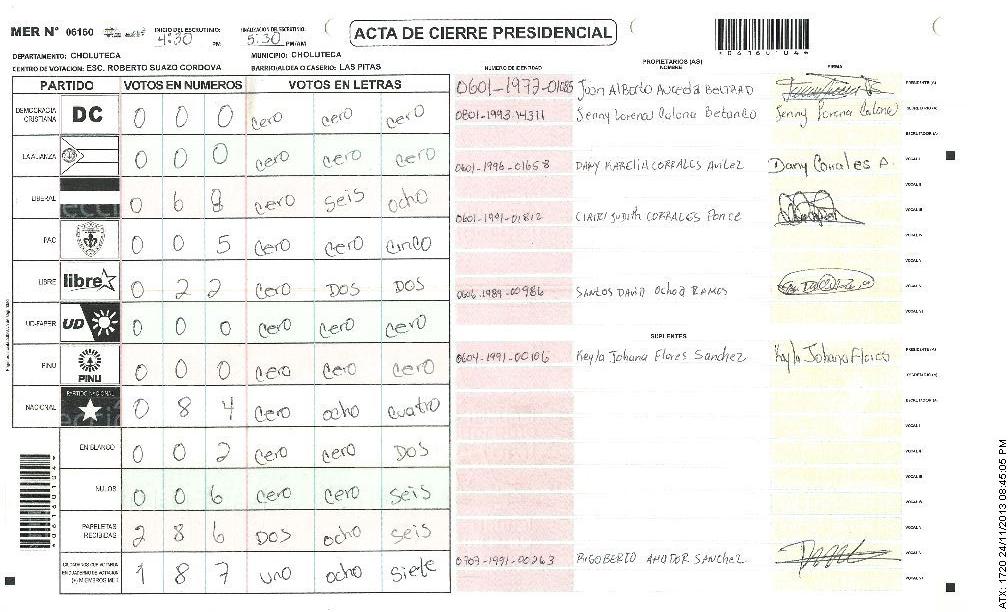 MER Nº 06160 INICIO DEL ESCRUTINIO: 4:30 PM FINALIZACION DE ESCRUTINIO: 5:30 PM/AM ACTA DE CIERRE PRESIDENCIAL 06160104
DEPARTAMENTO: CHOLUTECA MUNICIPIO: CHOLUTECA
CENTRO DE VOTACION: ESC. ROBERTO SUAZO CORDOVA BARRIO/ALDEA O CASERIO: LAS PITAS
PARTIDO VOTOS EN NUMEROS VOTOS EN LETRAS
DEMOCRACIA CRISTIANA DC 0 0 0 cero cero cero
LA ALIANZA 0 0 0 cero cero cero
LIBERAL 0 6 8 cero seis ocho
PAC 0 0 5 cero cero cinco
LIBRE libre 0 2 2 cero DOS DOS
UD-FAPER UD 0 0 0 cero cero cero
PINU PINU 0 0 0 cero cero cero
NACIONAL PARTIDO NACIONAL 0 8 4 cero ocho cuatro
EN BLANCO 0 0 2 cero cero DOS
NULOS 0 0 6 cero cero seis
PAPELETAS RECIBIDAS 2 8 6 DOS ocho seis
1 8 7 uno ocho siete
NUMERO DE IDENTIDAD PROPIETARIOS (AS) NOMBRE FIRMA
0601-1977-01085 Juan Alberto Auceda BELTRAD PRESIDENTE (A)
0801-1993-14311 Jenny Lorena Calona Betanco Jenny Lorena Calona SECRETARIO (A)
ESCRUTADOR (A)
0601-1996-01658 DANY MARELIA CORRALES AVILEZ Dany Corrales A. VOCAL I
VOCAL II
0601-1991-01812 JUDITH CORRALES Ponce VOCAL III
VOCAL IV
VOCAL V
0606-1989-00986 SANTOS DAVID Ochoa RAMOS
VOCAL VI
SUPLENTES
0604-1991-00106 Keyla Johana Flores Sanchez Keyla Johana Flores PRESIDENTE (A)
SECRETARIO (A)
ESCRUTADOR (A)
VOCAL I
VOCAL II
VOCAL III
VOCAL IV
VOCAL V
0709-1991-00263 RIGOBERTO AMADOR SANCHEZ
VOCAL VI
06160104
ATX: 1720 24/11/2013 08:45:05 PM